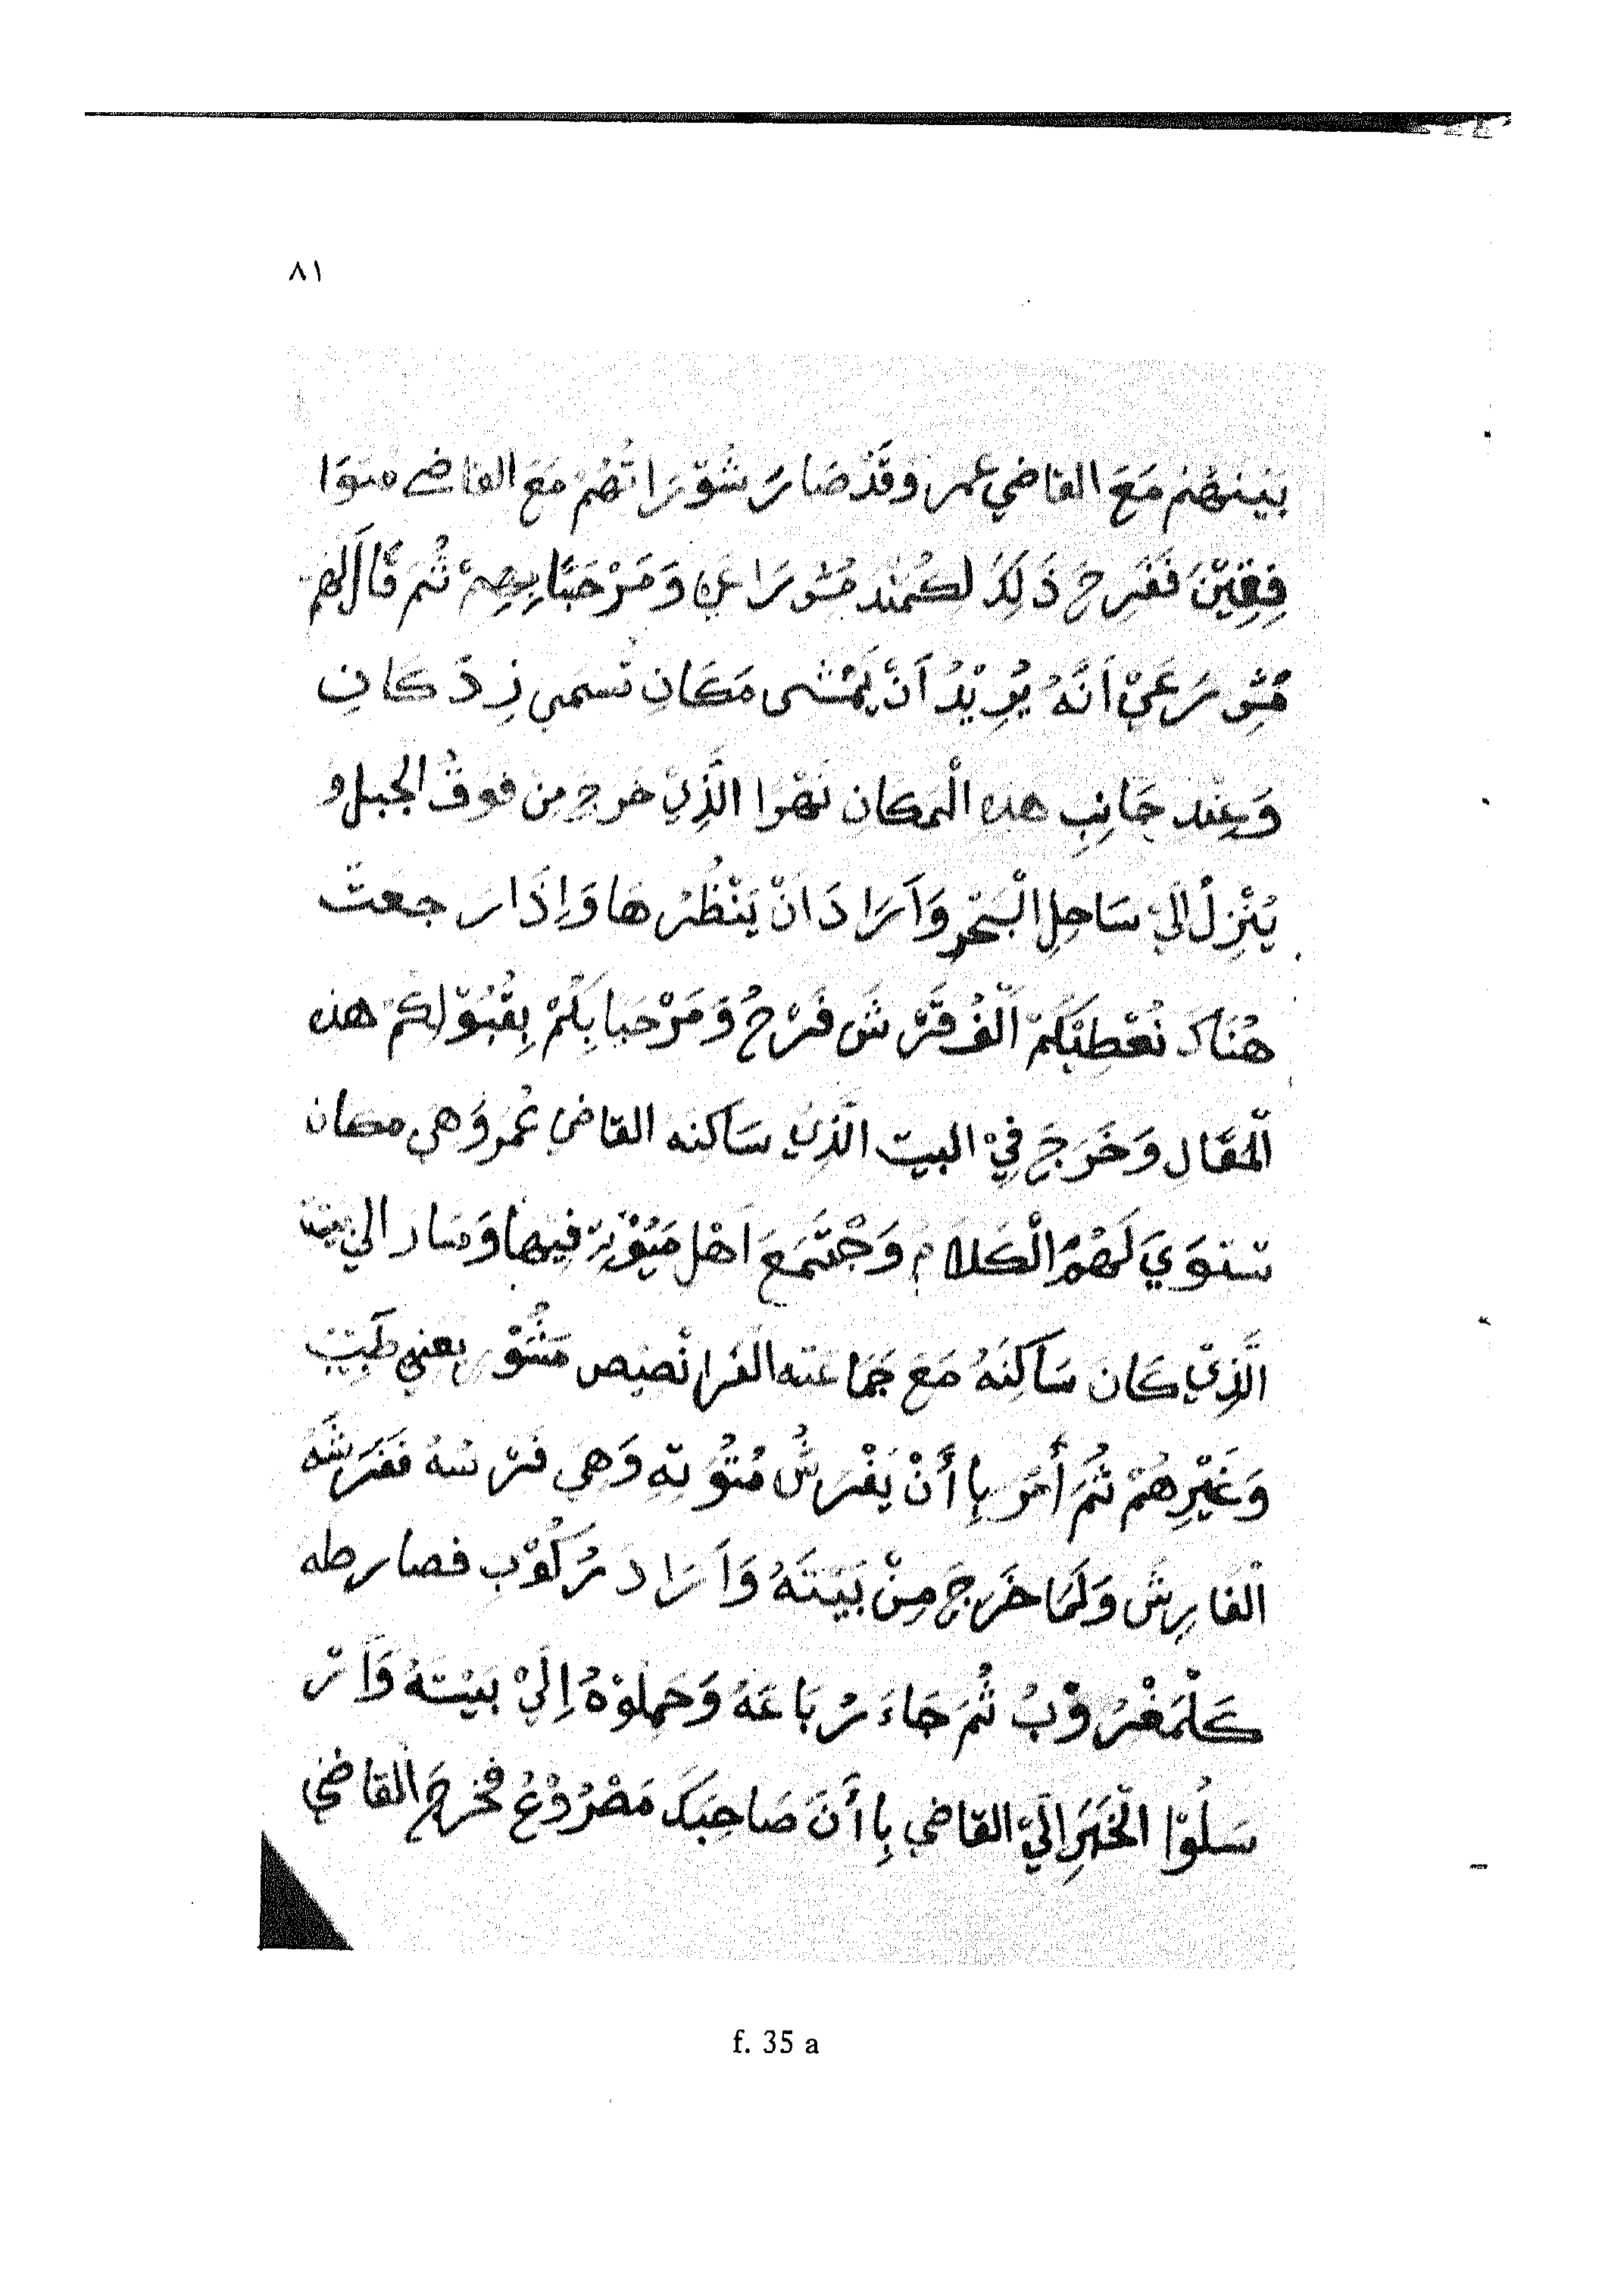 ٨١
بَيْنَهُمْ مَعَ القاضي عمر وَقَدْ صَارَ شُوْرَاتُهُمْ مَعَ القاضي متوَا
فِقِيْنَ فَفَرِحَ ذَلِكَ لكُمَنْد مُشْورَاعَيْ وَمَرْحَبًا بِهِمْ ثُمَ قَالَ لهم
مُشْورَعَيْ اَنَّهُ يُرِيْدُ اَنْ يَمْشى مَكَانِ تُسمي زِدَ كَانِ
وَعِنْد جَانِبِ هذه الْمكان نَهْوا الَّذِيْ خرج مِنْ فوقُ الجبل وُ
يُنْزِلُ اليْ سَاحِلِ الْبَحْرِ وَاَرَادَ اَنْ يَنْظُرُهَا وَاِذَا رَجعتْ
هُنَاكَ نُعْطِيْكُمْ اَلْفُ قَرْشَ فَرْحُ وَمَرْحَبا بِكُمْ بِقُبُوْلِكُمْ هذه
الْمَقَال وَخَرَجَ فِيْ البيت الَّذِيْ سَاكنه القاضي عُمر وَهي مكان
تستوَيَ لَهُمُ الْكَلَامُ وَجْتَمَعَ اَهْل مَيُوْتِهْ فيها وَسَار الي بيتة
الَّذِيْ كَانَ سَاكِنَهُ مَعَ جَمَاعَته الفَرانْصيص مَشُوْر يعني طَبِيْب
وَغَيْرِهُمْ ثُمَ أَمَرَ بِا أَنْ يَفْرَشُ مُتُوْتِهِ وَهي فَرْسُهُ فَفَرَشَهُ
الْفَارِشَ وَلَمَا خَرَجَ مِنْ بَيْتَهُ وَاَرَادَ رُكُوْب فصار طه
كَلْمَغْرُوْبُ ثُمَ جَاءَ رُبَاعَهُ وَحَمِلُوْهُ اِلَيْ بَيْتَهُ وَاَرْ
سَلُوْا الْخَبَرَ اليْ القاضي بِا أَنَ صَاحِبَكَ مَصْرُوْعُ فخرجَ القاضي
f. 35 a